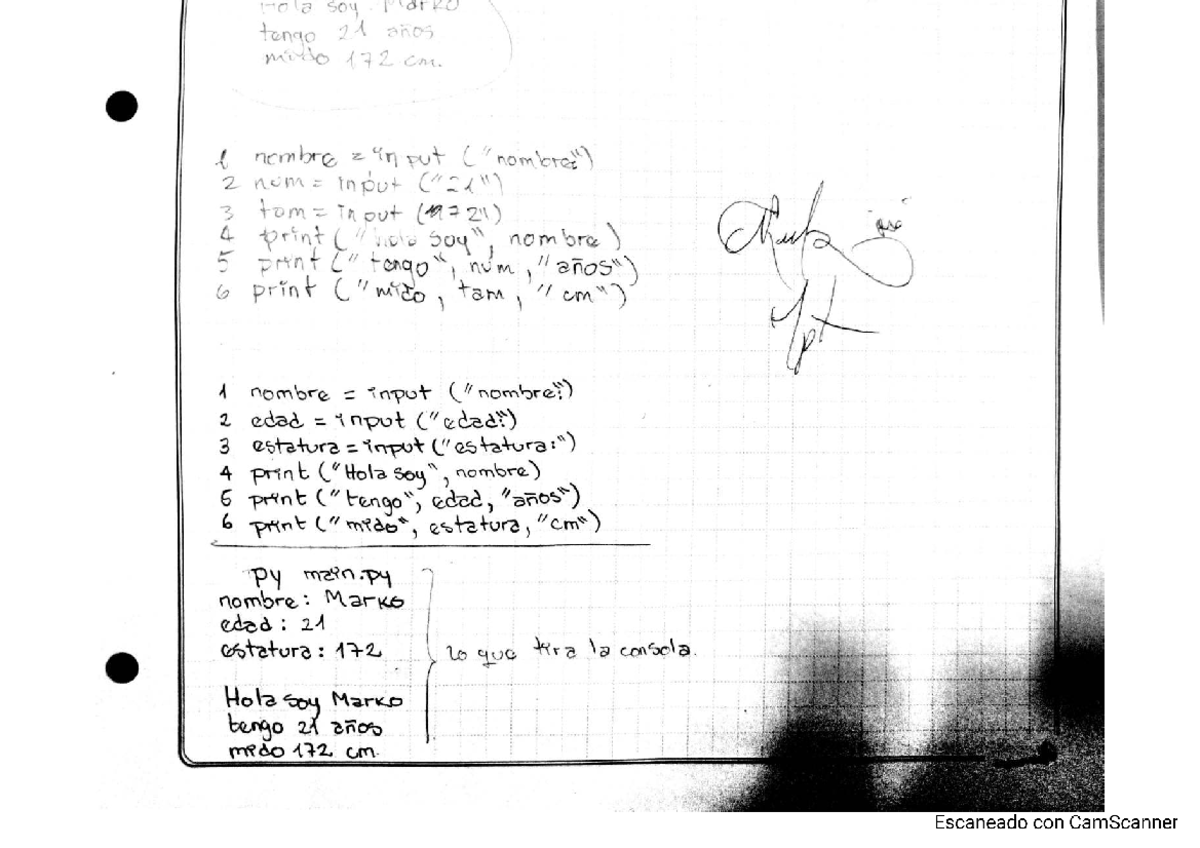 Hola soy Marko
tengo 21 años
mido 172 cm.
1 nombre = input ("nombre:")
2 num = input ("21")
3 tam = input ("172")
4 print ("hola soy", nombre)
5 print ("tengo", num, "años")
6 print ("mido, tam, "cm")
1 nombre = input ("nombre:")
2 edad = input ("edad:")
3 estatura = input ("estatura:")
4 print ("Hola soy", nombre)
5 print ("tengo", edad, "años")
6 print ("mido", estatura, "cm")
py main.py
nombre: Marko
edad: 21
estatura: 172
lo que tira la consola.
Hola soy Marko
tengo 21 años
mido 172 cm.
Escaneado con CamScanner